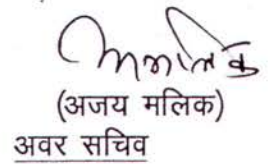 (अजय मलिक)
अवर सचिव